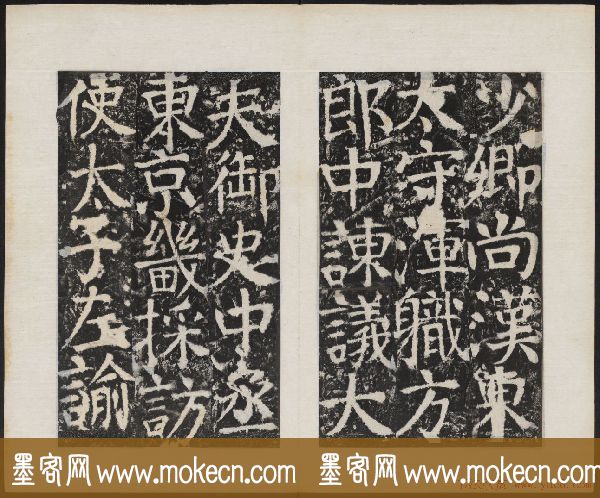 少卿尚漢東
太守渾職方
郎中諫議大
夫御史中丞
東京畿採訪
使太子左諭
墨客网 www.mokecn.com 墨客网 www.mokecn.com